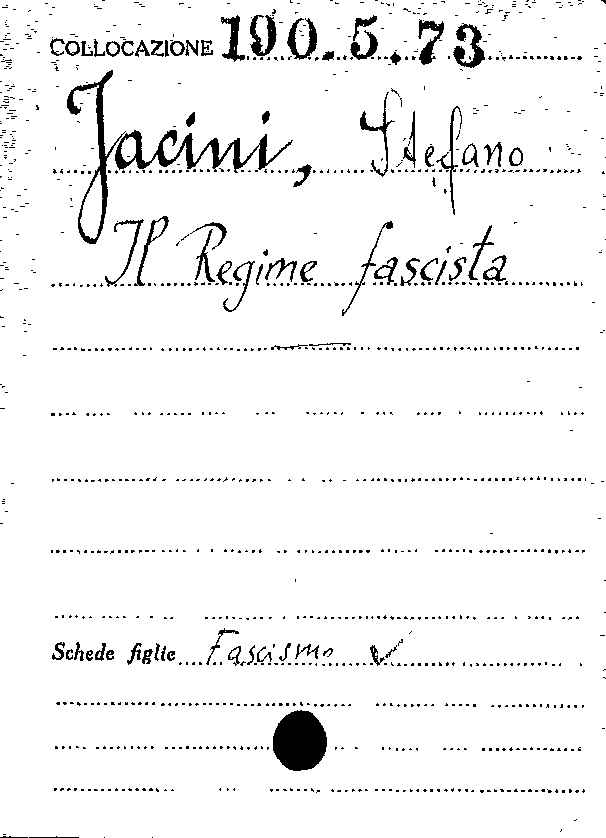 COLLOCAZIONE 190.5.73
Jacini, Stefano
Il Regime fascista
Schede figlie Fascismo ✓